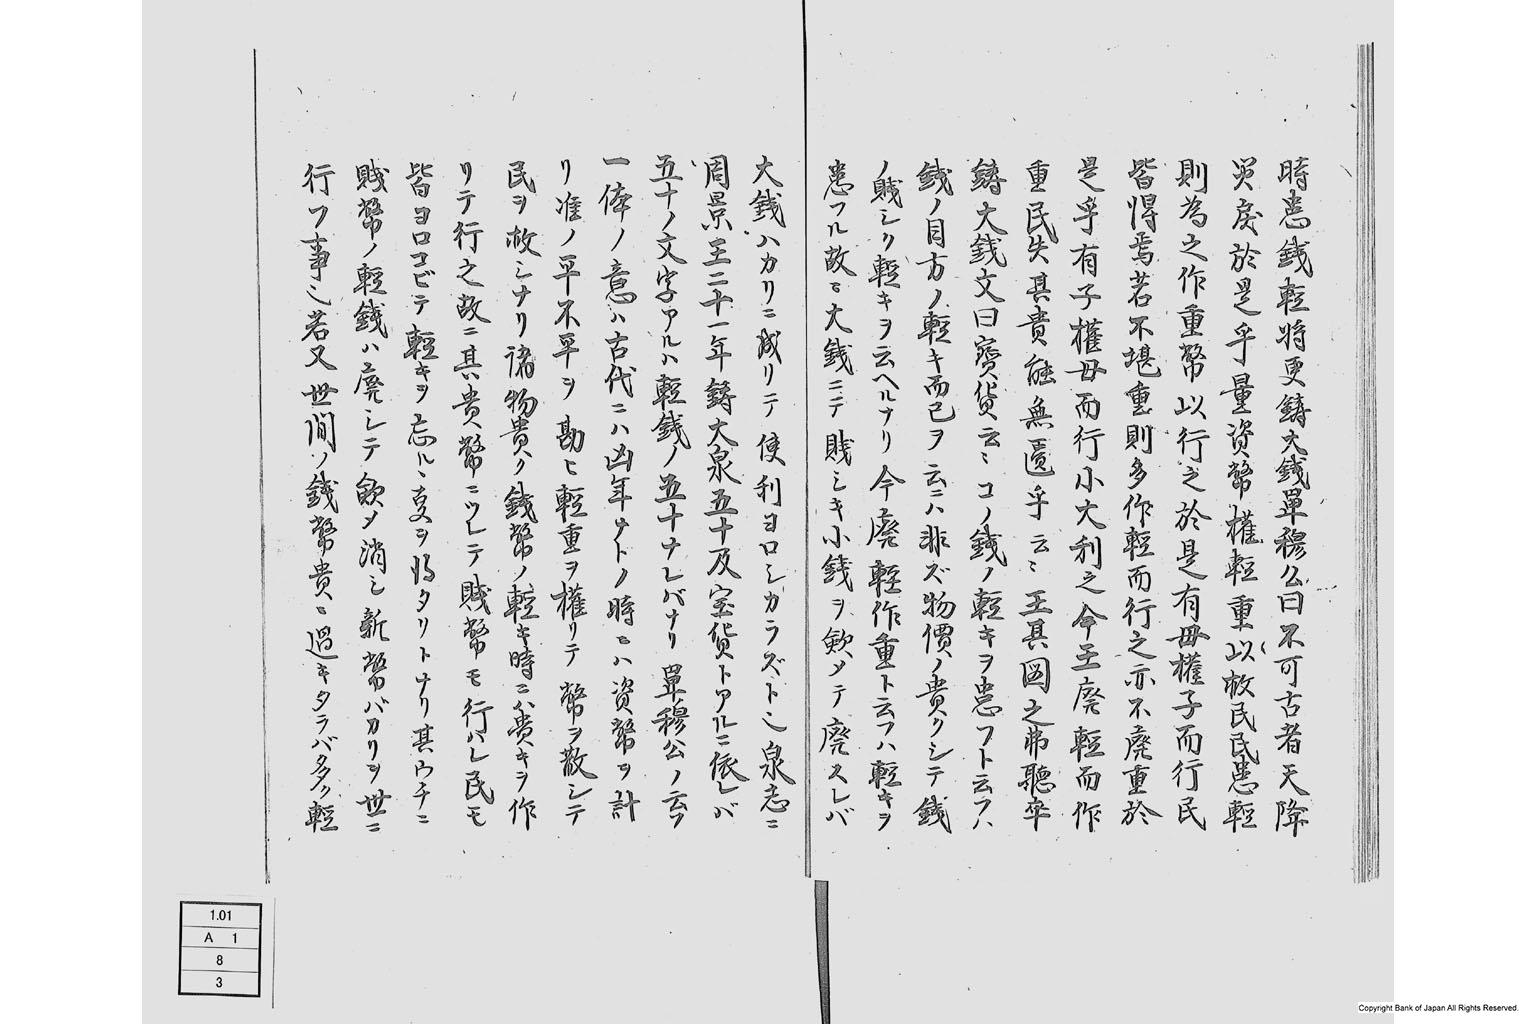 時患銭軽将更鋳大銭單穆公曰不可古者天降
災戻於是乎量資幣權軽重以救民民患軽
則為之作重幣以行之於是有母權子而行民
皆得焉若不堪重則多作軽而行之亦不廃重於
是乎有子權母而行小大利之今王廃軽而作
重民失其貴能無匱乎云〻王其図之弗聴卒
鋳大銭文曰寶貨云〻コノ銭ノ軽キヲ患フト云フハ
銭ノ目方ノ軽キ而已ヲ云ニハ非ズ物價ノ貴クシテ銭
ノ賎シク軽キヲ云ヘルナリ今廃軽作重ト云フハ軽キヲ
患フル故ニ大銭ニテ賎シキ小銭ヲ歛メテ廃スレバ
大銭ハカリニ成リテ使利ヨロシカラズト也泉志ニ
周景王二十一年鋳大泉五十及宝貨トアルニ依レバ
五十ノ文字アルハ軽銭ノ五十ナレバナリ單穆公ノ云フ
一体ノ意ハ古代ニハ凶年ナトノ時ニハ資幣ヲ計
リ准ノ平不平ヲ勘ヒ軽重ヲ權リテ幣ヲ散シテ
民ヲ救シナリ諸物貴ク銭幣ノ軽キ時ニハ貴キヲ作
リテ行之故ニ其貴幣ニツレテ賎幣モ行ハレ民モ
皆ヨロコビテ軽キヲ忘ルヽ事ヲ得タリトナリ其ウチニ
賎幣ノ軽銭ハ廃シテ歛メ消シ新幣バカリヲ世ニ
行フ事也若又世間ノ銭幣貴ニ過キタラバ多ク軽
1.01
A 1
8
3
Copyright Bank of Japan All Rights Reserved.